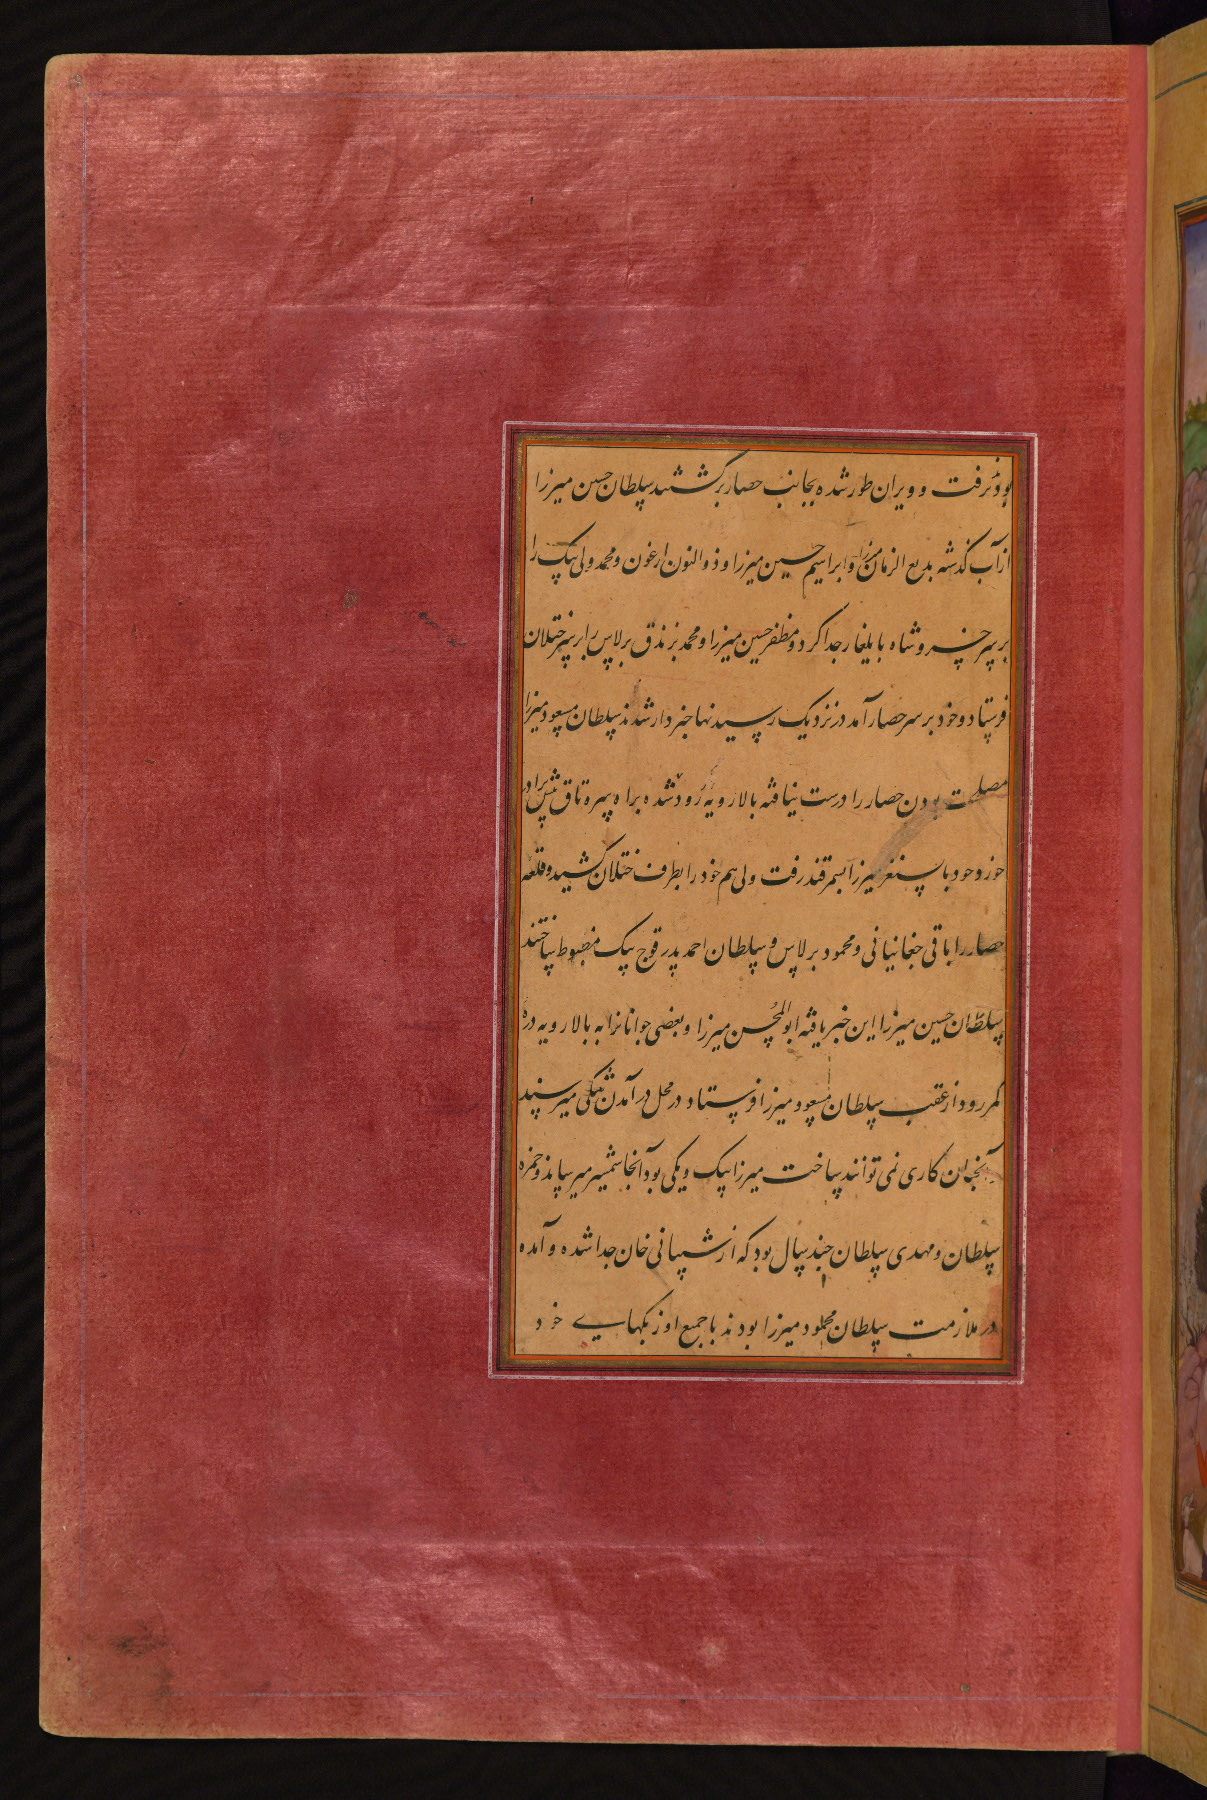 بود نرفت و ویران طور شده بجانب حصار برگشتند سلطان حسین میرزا
از آب گذشته بدیع الزمان میرزا و ابراهیم حسین میرزا و ذوالنون ارغون و محمد ولی بیک را
بر سر خسرو شاه بایلغار جدا کرد و مظفر حسین میرزا و محمد برندق برلاس را بر سر ختلان
فرستاد و خود بر سر حصار آمد در نزدیک رسیدنها خبردار شدند سلطان مسعود میرزا
مصلحت بودن حصار را درست نیافته بالا رویه رود شده براه سره تاق پیش برادر
خورد خود بایسنغر میرزا بسمرقند رفت ولی هم خود را بطرف ختلان کشید و قلعه
حصار را باقی جغانیانی و محمود برلاس و سلطان احمد پدر قوج بیک مضبوط ساختند
سلطان حسین میرزا این خبر یافته ابوالمحسن میرزا و بعضی جوانانرا به بالا رویه دره
کمرود از عقب سلطان مسعود میرزا فرستاد در محل درآمدن تنگی میرسند
آنچنان کاری نمی توانند ساخت میرزا بیک ویکی بود آنجا شمشیر میرساند و حمزه
سلطان و مهدی سلطان چند سال بود که از شیبانی خان جدا شده و آمده
در ملازمت سلطان محمود میرزا بودند با جمع اوزبکهای خود